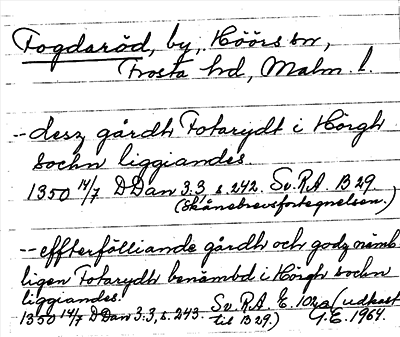 Fogdaröd, by, Höörs sn,
Frosta hd, Malm. l.
-- desz gårdh Fotarydt i Hörgh
sochn liggiandes.
1350 14/7 DDan 3:3, s. 242. Sv. R.A. B 29
(Skånebrevsförtegnelsen.)
-- effterfölliande gårdh och godz nemb
ligen Fotarydh benämbd i Hörgh sochn
liggiandes.
1350 14/7 DDan 3:3, s. 243. Sv. R.A. E. 102a (udkast
til B 29.) G.E. 1964.